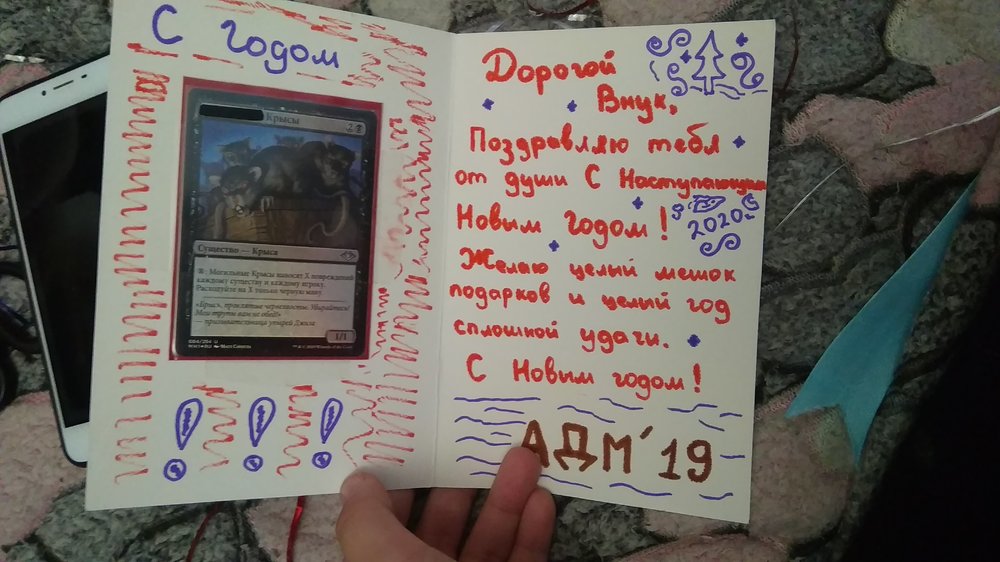 С годом
Крысы
2
Существо — Крыса
Могильные Крысы наносят X повреждений
каждому существу и каждому игроку.
Расходуйте на X только черную ману.
«Крысы, проклятые чернокостые. Убирайтесь!
Мои трупы вам не обед!»
1/1
!!!
Дорогой
Внук,
Поздравляю тебя
от души С Наступающим
Новым годом!
2020
Желаю целый мешок
подарков и целый год
сплошной удачи.
С Новым годом!
АДМ'19